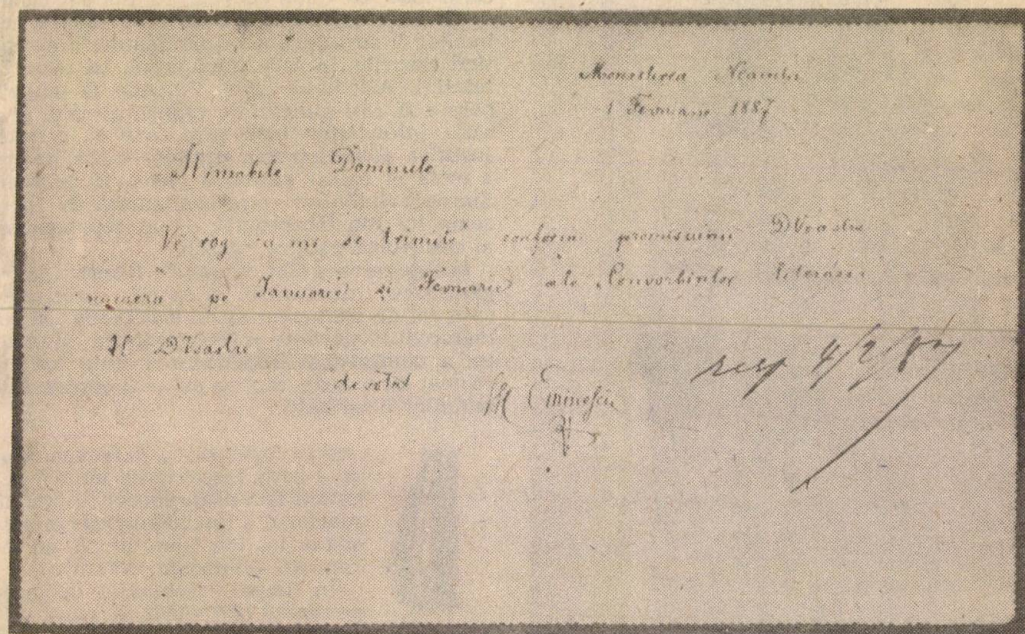 Monastirea Neamtu
1 Fevruarie 1887
Stimabile Domnule
Vĕ rog a mi se trimite conform promisiunii DVoastre
numera pe Januarie si Fevruarie ale Convorbirilor literare
Al DVoastre
devotat
M Eminescu
resp 4/2/87